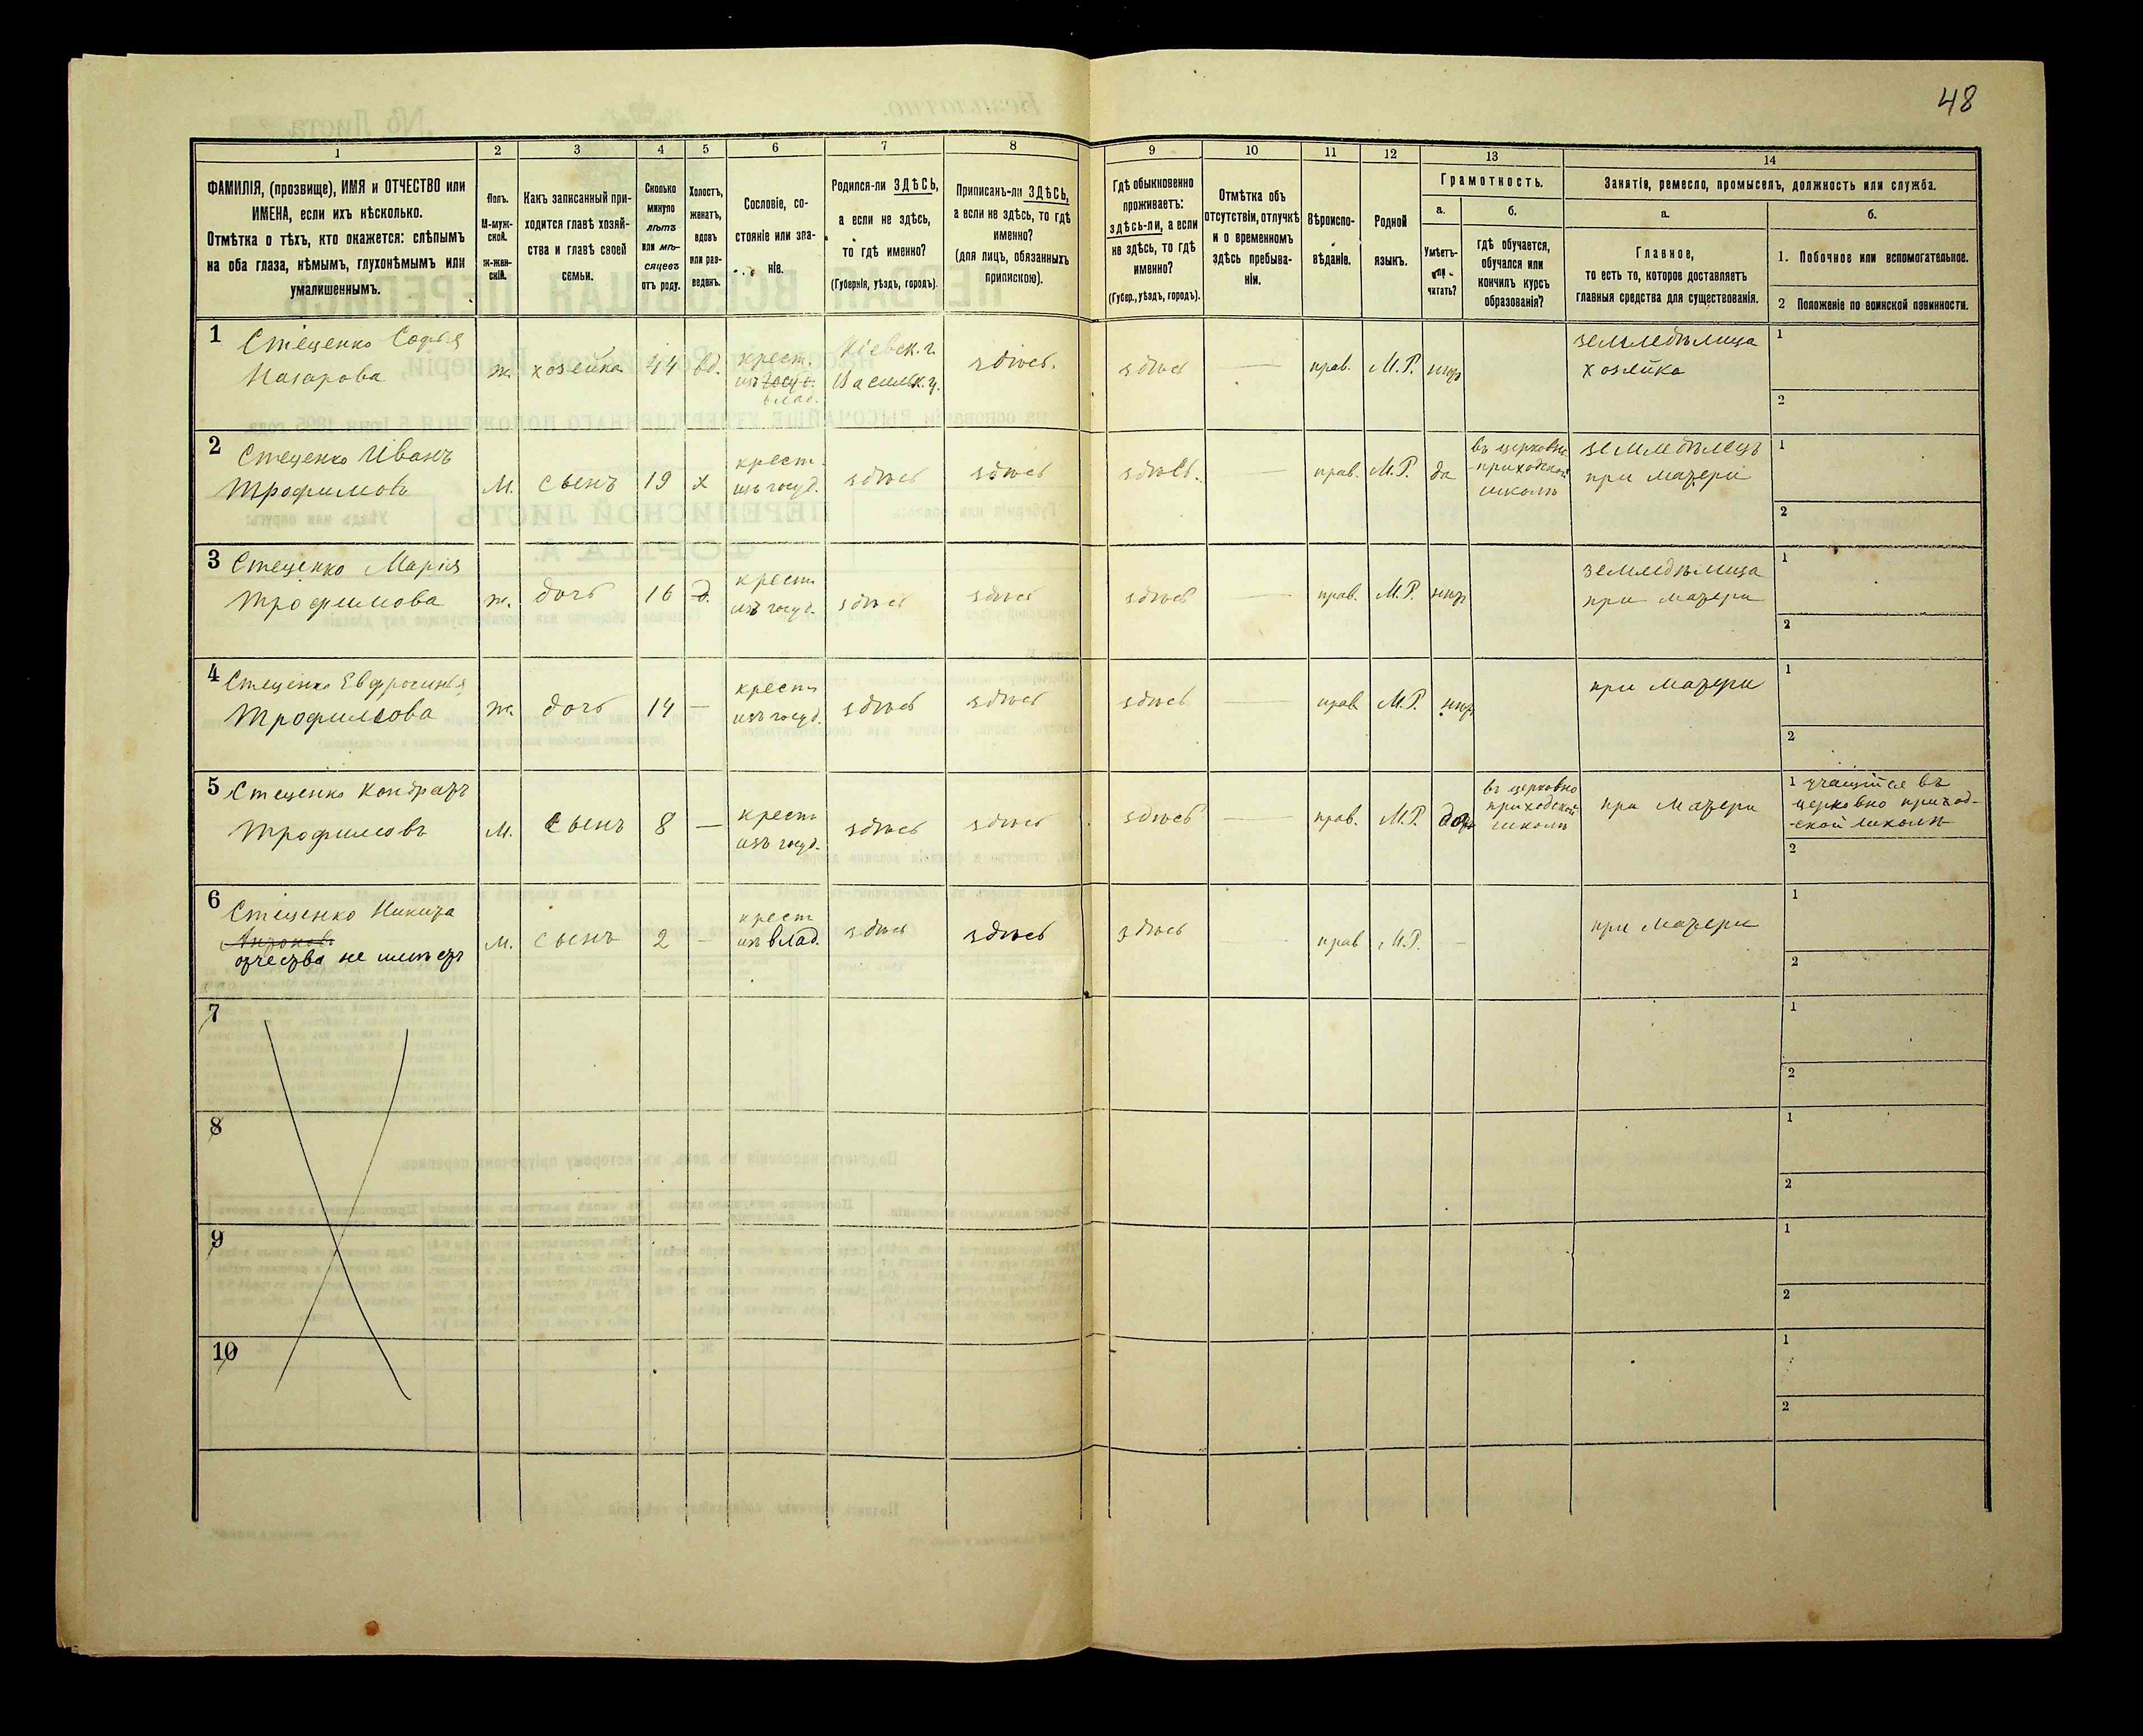 48
1
2
3
4
5
6
7
8
9
10
11
12
13
14
ФАМИЛІЯ, (прозвище), ИМЯ и ОТЧЕСТВО или
ИМЕНА, если ихъ нѣсколько.
Отмѣтка о тѣхъ, кто окажется: слѣпымъ
на оба глаза, нѣмымъ, глухонѣмымъ или
умалишеннымъ.
Полъ.
М-муж-
ской.
Ж-жен-
скій.
Какъ записанный при-
ходится главѣ хозяй-
ства и главѣ своей
семьи.
Сколько
минуло
лѣтъ
или мѣ-
сяцевъ
отъ роду.
Холостъ,
женатъ,
вдовъ
или раз-
веденъ.
Сословіе, со-
стояніе или зва-
ніе.
Родился-ли ЗДѢСЬ,
а если не здѣсь,
то гдѣ именно?
(Губернія, уѣздъ, городъ).
Приписанъ-ли ЗДѢСЬ,
а если не здѣсь, то гдѣ
именно?
(для лицъ, обязанныхъ
припискою).
Гдѣ обыкновенно
проживаетъ:
здѣсь-ли, а если
не здѣсь, то гдѣ
именно?
(Губер., уѣздъ, городъ).
Отмѣтка объ
отсутствіи, отлучкѣ
и о временномъ
здѣсь пребыва-
ніи.
Вѣроиспо-
вѣданіе.
Родной
языкъ.
Грамотность.
а.
Умѣетъ-
ли
читать?
б.
гдѣ обучается,
обучался или
кончилъ курсъ
образованія?
Занятіе, ремесло, промыселъ, должность или служба.
а.
Главное,
то есть то, которое доставляетъ
главныя средства для существованія.
б.
1. Побочное или вспомогательное.
2 Положеніе по воинской повинности.
1
Стеценко Софья
Назарова
ж.
хозейка
44
вд.
крест.
изъ госуд.
влад.
Кіевск. г.
Васильк. у.
здѣсь.
здѣсь
—
прав.
М.Р.
нѣтъ
земледѣлица
хозяйка
1
2
2
Стеценко Иванъ
Трофимовъ
М.
сынъ
19
х
крест.
изъ госуд.
здѣсь
здѣсь
здѣсь.
—
прав.
М.Р.
да
въ церковно
-приходской
школѣ
земледѣлецъ
при матери
1
2
3
Стеценко Марія
Трофимова
ж.
дочь
16
д.
крест
изъ госуд.
здѣсь
здѣсь
здѣсь
—
прав.
М.Р.
нѣтъ
земледѣлица
при матери
1
2
4
Стеценко Евфросинья
Трофимова
ж.
дочь
14
—
крест
изъ госуд.
здѣсь
здѣсь
здѣсь
—
прав.
М.Р.
нѣтъ
при матери
1
2
5
Стеценко Кондратъ
Трофимовъ
М.
сынъ
8
—
крест
изъ госуд.
здѣсь
здѣсь
здѣсь
—
прав.
М.Р.
да
въ церковно
приходской
школѣ
при матери
1 учащійся въ
церковно приход-
-ской школѣ
2
6
Стеценко Никита
отчества не имѣетъ
М.
сынъ
2
—
крест
изъ влад.
здѣсь
здѣсь
здѣсь
—
прав
М.Р.
—
при матери
1
2
7
1
2
8
1
2
9
1
2
10
1
2